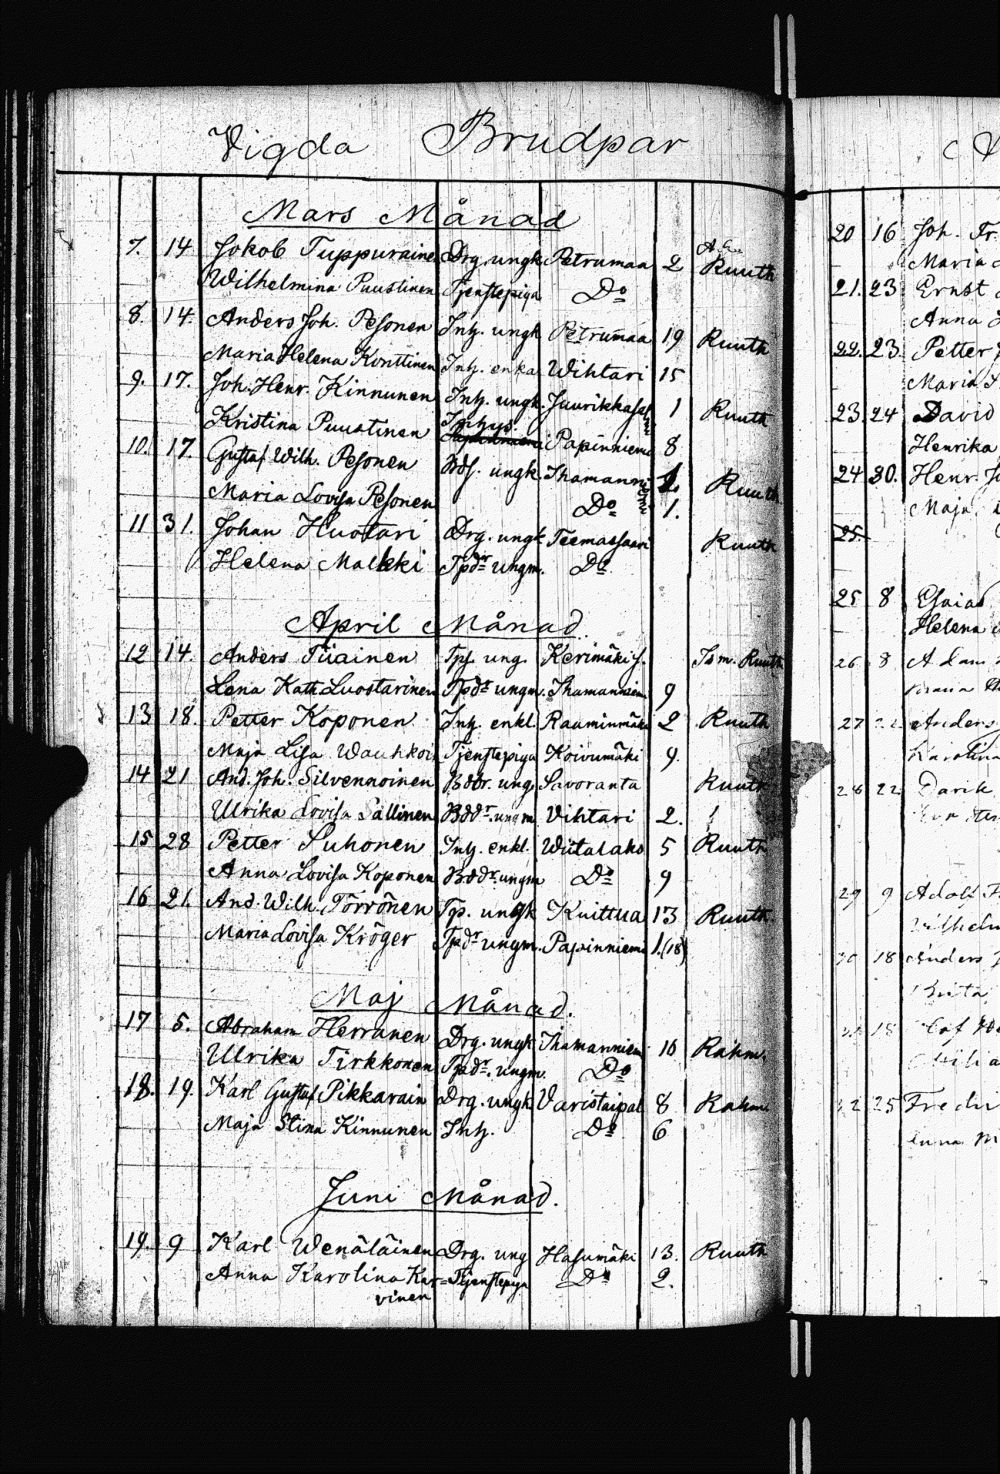 Vigda Brudpar
Mars Månad
7. 14 Jokob Tuppurainen Drg. ungk Petrumaa 2 Ruuth
Wilhelmina Puustinen Tjenstepiga Do
8. 14. Anders Joh. Pesonen Inh. ungk Petrumaa 19 Ruuth
Maria Helena Konttinen Inh. enka Wihtari 15
9. 17. Joh. Henr. Kinnunen Inh. ungk. Juurikka 1 Ruuth
Kristina Puustinen Papinniemi 8
10. 17. Gustaf Wilh. Pesonen Bds. ungk. Ihamanni 1. Ruuth
Maria Lovisa Pesonen Do 1.
11 31. Johan Huotari Drg. ungk Teemassaari Ruuth
Helena Malkki Tpdr ungm. Do
April Månad
12 14. Anders Tiiainen Tps. ung. Kerimäki Ruuth
Lena Kath Luostarinen Tpdr ungm. Ihamanniemi 9
13 18. Petter Koponen Inh. enkl. Raaminmäki 2 Ruuth
Maja Lisa Tjenstepiga Koivumäki 9.
14 21 And. Joh. Silvennoinen Bdr. ung. Savoranta Ruuth
Ulrika Lovisa Sallinen Bddr. ungm Vihtari 2.
15 28 Petter Suhonen Inh. enkl. Wiitalaks 5 Ruuth
Anna Lovisa Koponen Bddr. ungm Do 9
16 21. And. Wilh. Törrönen Tp. ungk Kuittua 13 Ruuth
Maria Lovisa Kröger Tpdr ungm. Papinniemi 1.(18)
Maj Månad.
17 5. Abraham Herranen Drg. ungk Ihamanniemi 10 Rahm.
Ulrika Tirkkonen Tpdr. ungm. Do
18. 19. Karl Gustaf Pikkarain Drg. ungk Varistaipal 8 Rahm.
Maja Stina Kinnunen Inh. Do 6
Juni Månad.
19. 9 Karl Wenäläinen Drg. ung Hasumäki 13. Ruuth
Anna Karolina Kar= Tjenstepiga Do 2.
vinen
20 16 Joh. Fr.
Maria
21. 23 Ernst
Anna
22. 23. Petter
Maria
23. 24 David
Henrika
24 30. Henr.
Maja
25
25 8 Esaias
Helena
26 8 Adam
27 Anders
Karolina
28 22
29 9 Adolf
Wilhelm
30 18 Anders
18
32 25 Fredr